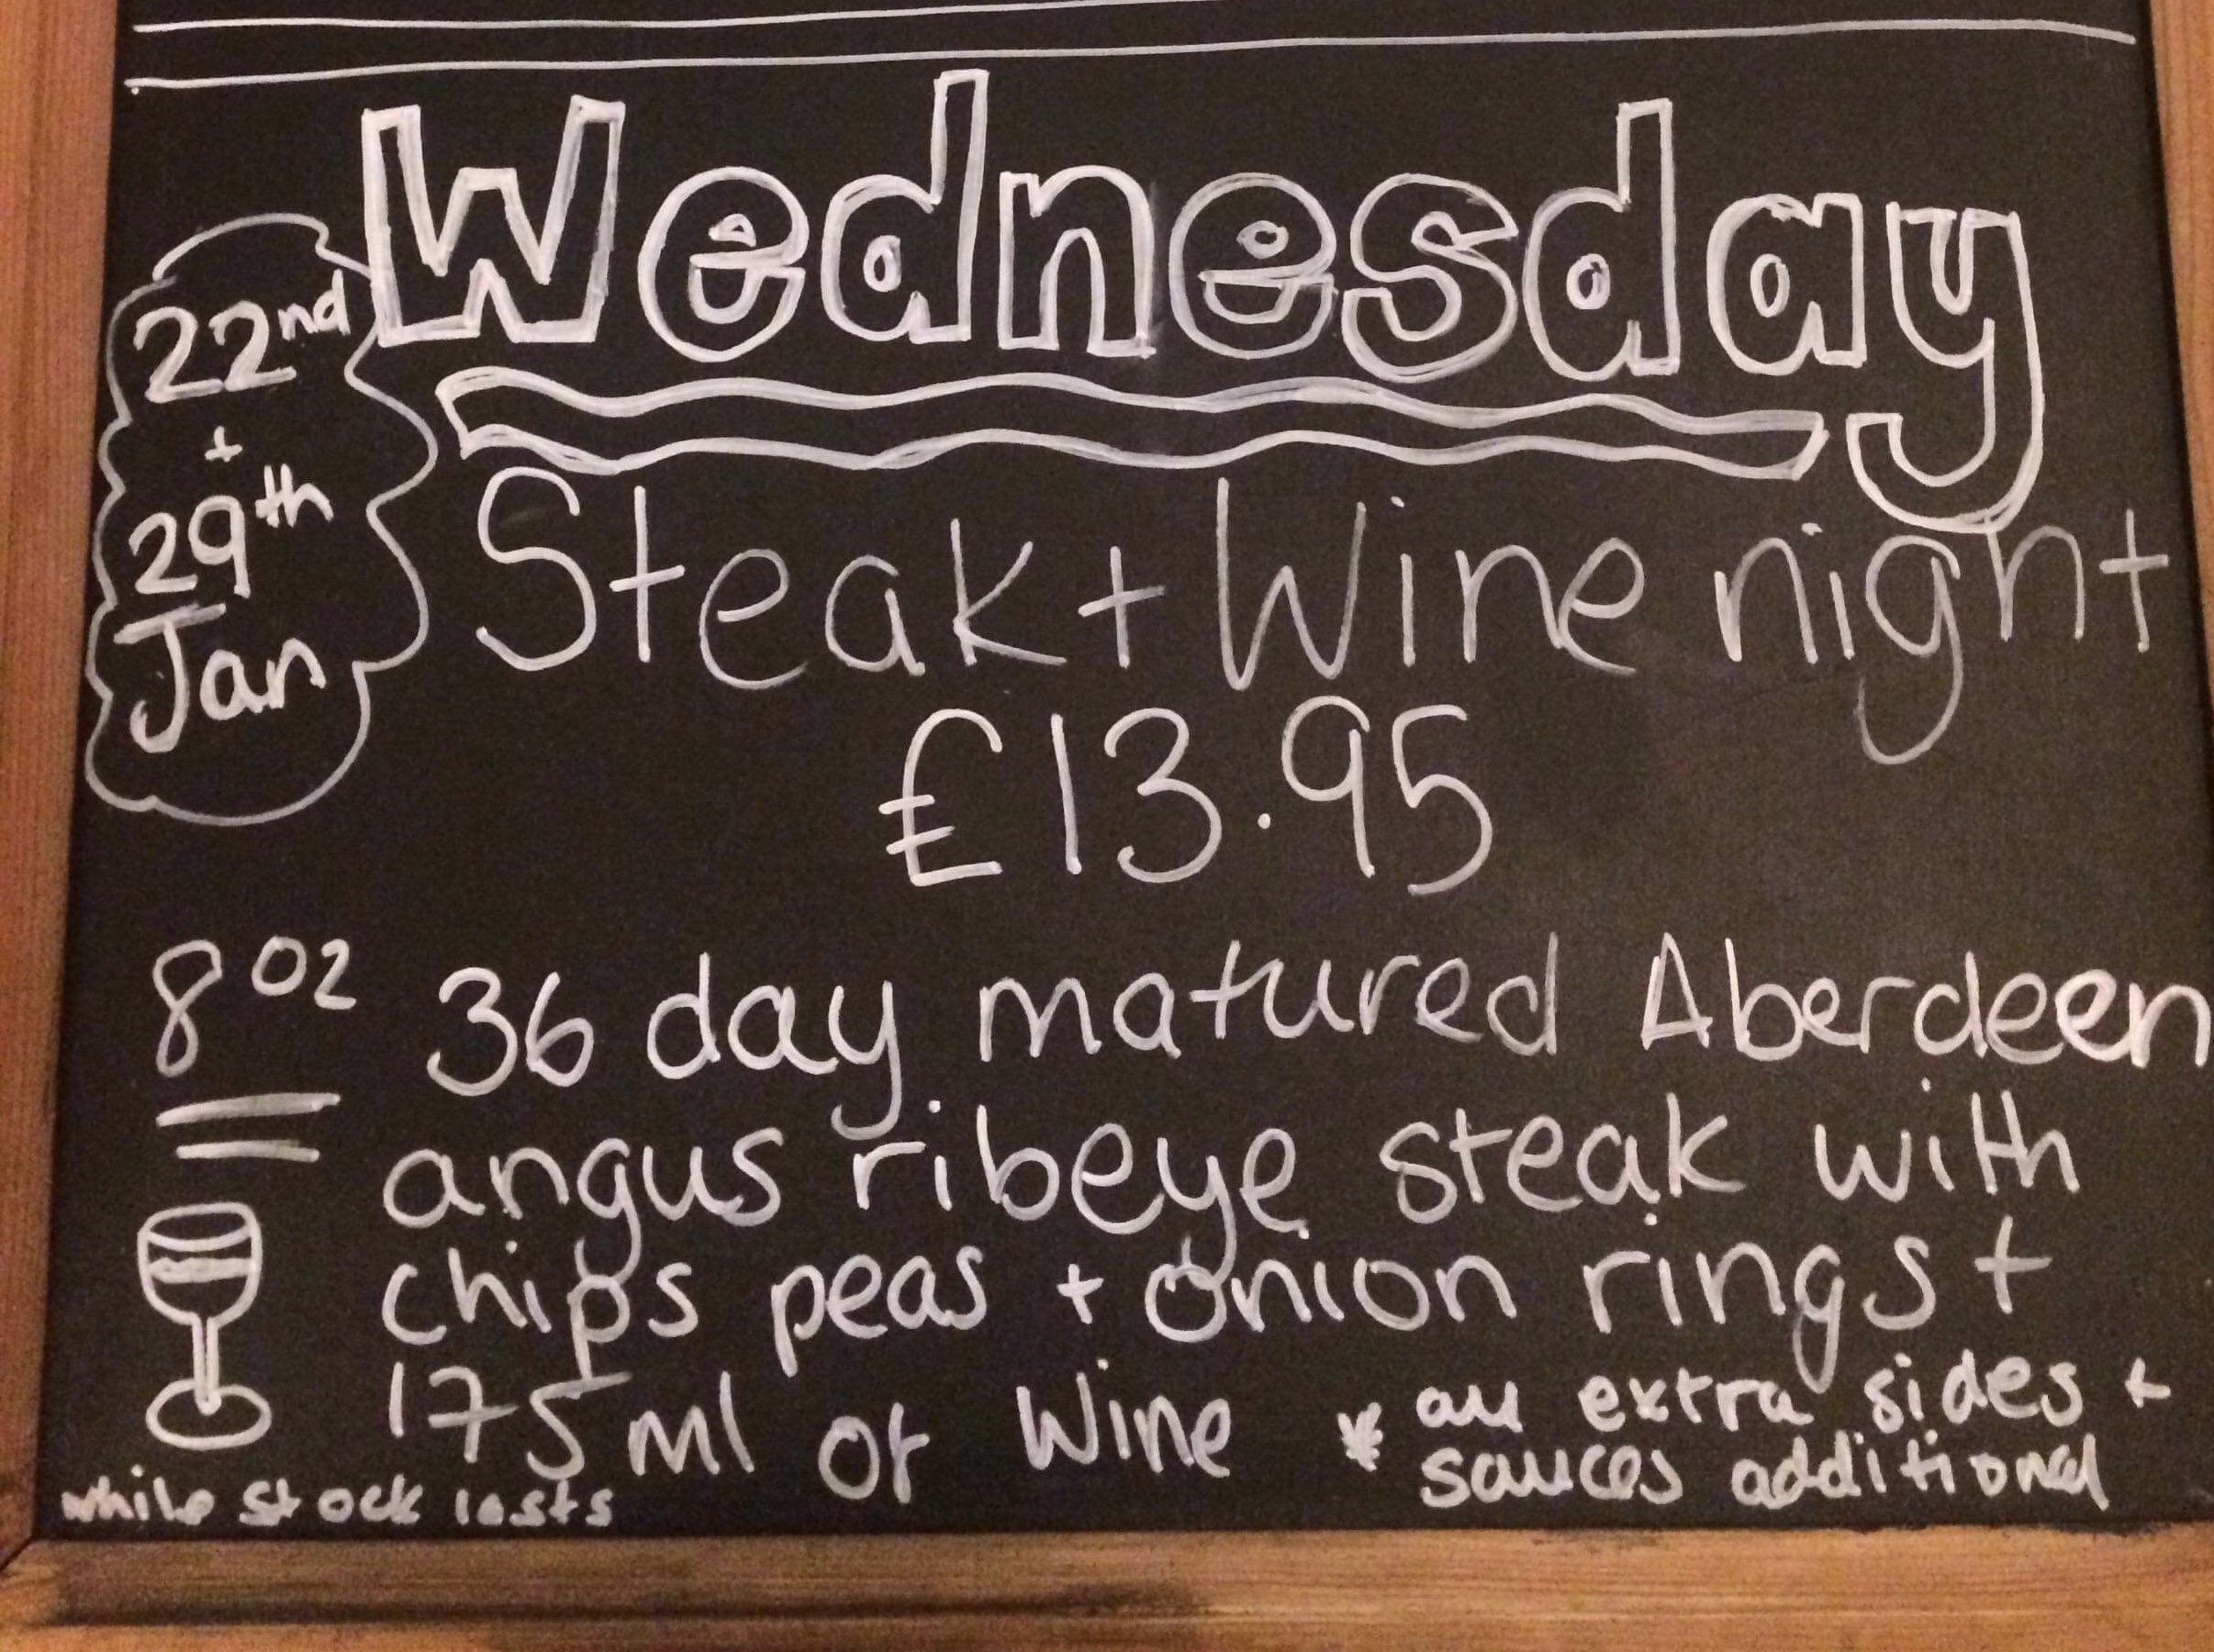 Wednesday
22nd
+
29th
Jan
Steak + Wine night
£13.95
8oz
36 day matured Aberdeen
angus ribeye steak with
chips peas + onion rings +
175ml of Wine
* all extra sides +
sauces additional
while stock lasts